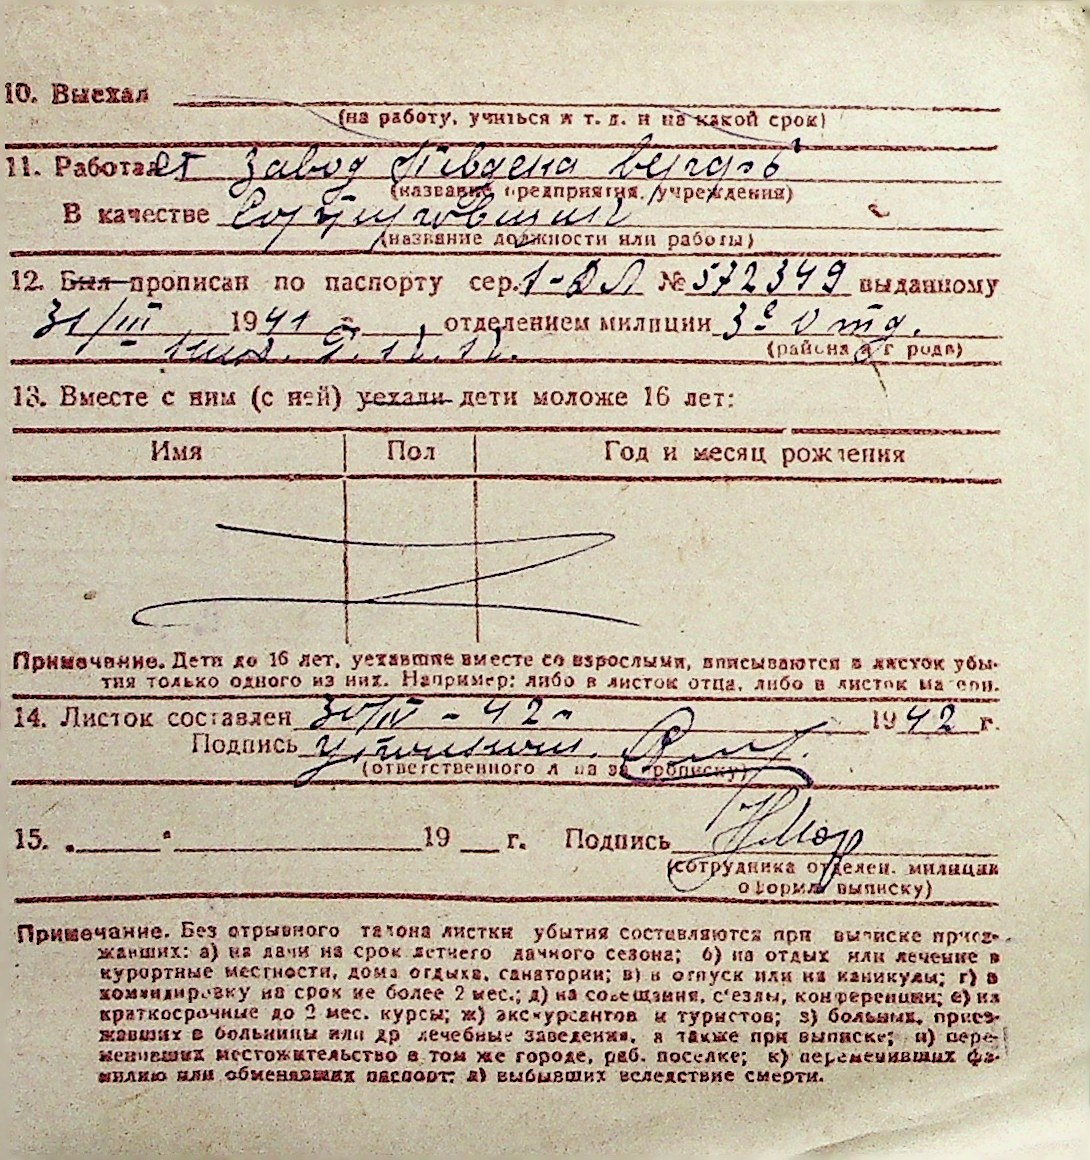 10. Выехал
(на работу, учиться и т. д. и на какой срок)
11. Работает Завод
(название предприятия, учреждения)
В качестве
(название должности или работы)
12. Был прописан по паспорту сер. 1-ДЛ № 572349 выданному
31/III 1941 г. отделением милиции 3е Отд.
(района и города)
13. Вместе с ним (с ней) уехали дети моложе 16 лет:
Имя Пол Год и месяц рождения
Примечание. Дети до 16 лет, уехавшие вместе со взрослыми, вписываются в листок убы-
тия только одного из них. Например: либо в листок отца, либо в листок матери.
14. Листок составлен 30/IV - 42 1942 г.
Подпись
(ответственного лица за прописку)
15. „ “ 19 г. Подпись
(сотрудника отделен. милиции
оформл. выписку)
Примечание. Без отрывного талона листки убытия составляются при выписке приез-
жавших: а) на дачи на срок летнего дачного сезона; б) на отдых или лечение в
курортные местности, дома отдыха, санатории; в) в отпуск или на каникулы; г) в
командировку на срок не более 2 мес.; д) на совещания, с'езды, конференции; е) на
краткосрочные до 2 мес. курсы; ж) экскурсантов и туристов; з) больных, приез-
жавших в больницы или др лечебные заведения, а также при выписке; и) пере-
менивших местожительство в том же городе, раб. поселке; к) переменивших фа-
милию или обменявших паспорт; л) выбывших вследствие смерти.